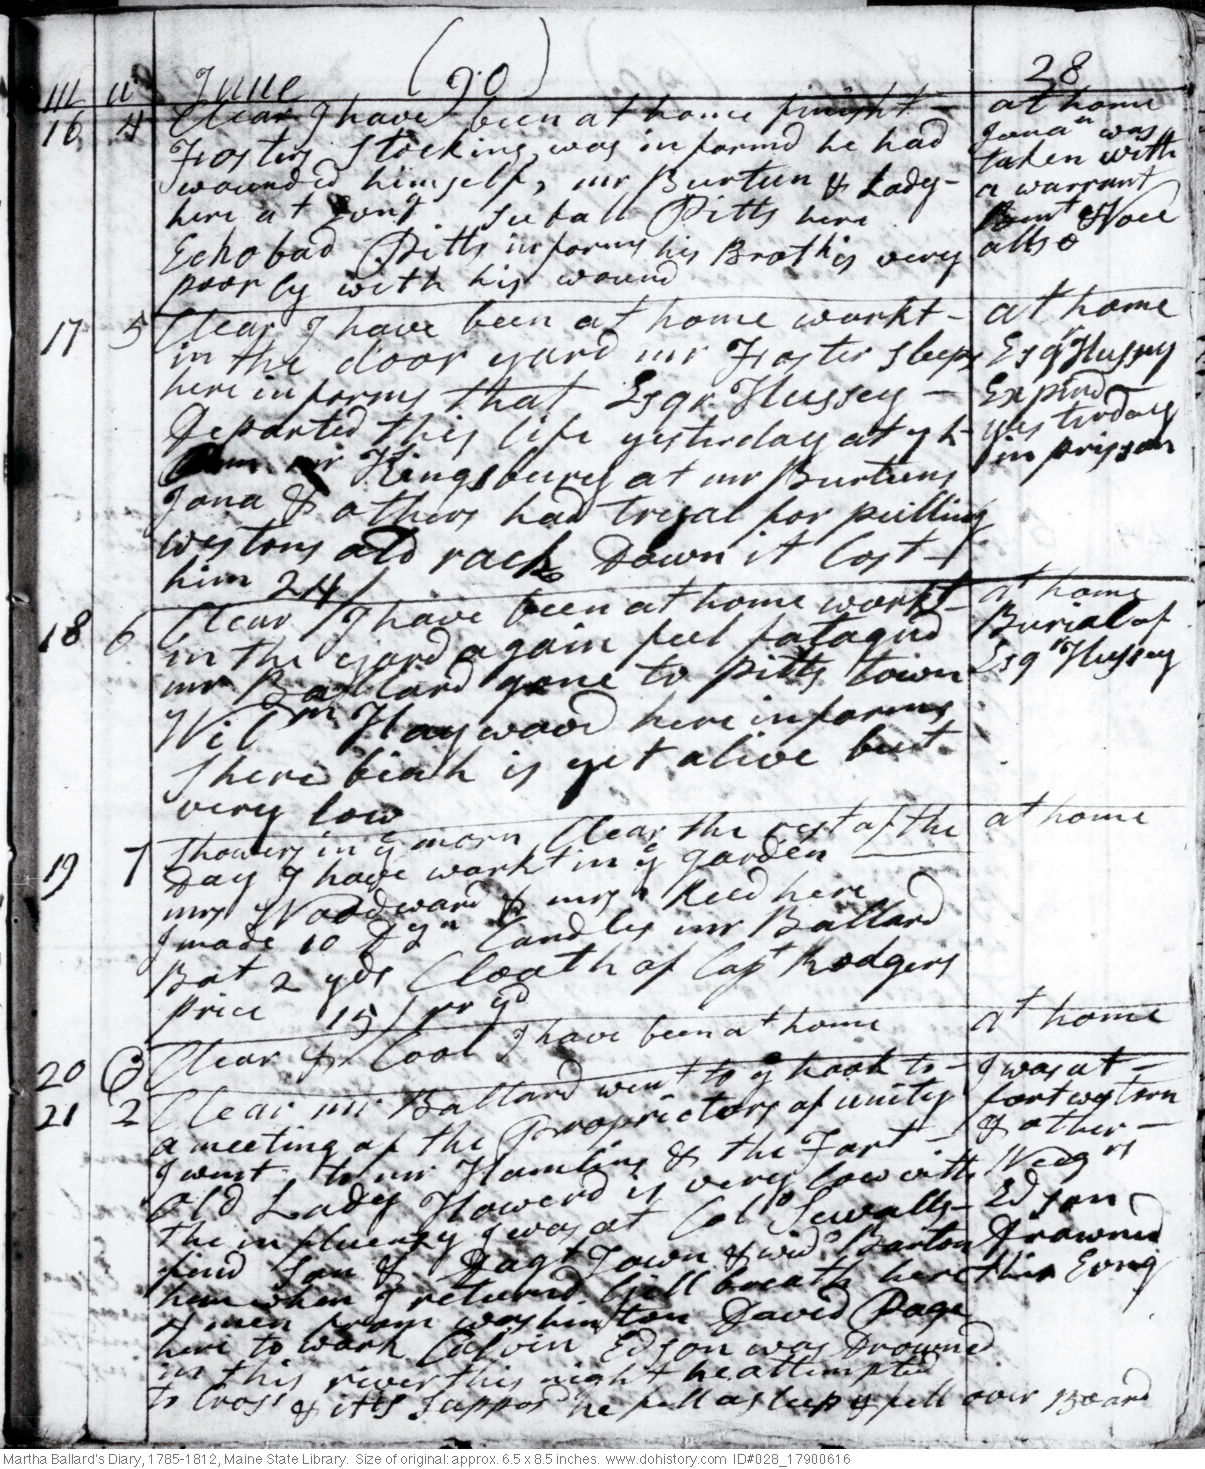 June (90) 28
16 4 Clear I have been at home finisht -
Fosters Stocking, was informd he had
wounded himself, mr Burtun & Lady -
here at Evng. Seball Pitts here
Echobad Pitts informs his Broth is very
poorly with his wound
at home
Jonan was
taken with
a warrant
allso
17 5 Clear I have been at home workt -
in the door yard mr Foster sleeps
here informs that Esqr Hussey -
Departed this life yesterday at yh -
mr Kingsbury at mr Burtuns
Jona & others had tryal for pulling
westons old rack Down it Cost -
him 24/
at home
Esqr Hussey
Expird
yesterday
in prisson
18 6 Clear I have been at home workt -
in the yard again feel fatagud
mr Ballard gone to Pitts town
Willm Haywood here informs
Sherebiah is yet alive but
very low
at home
Burial of
Esqr Hussey
19 7 Showers in ye morn Clear the rest of the
Day I have workt in ye garden
mrs Woodward & mrs Reed here
I made 10 Dzn Candles mr Ballard
Bot 2 yds Cloath of Capt Rodgers
price 15/ pr yd
at home
20 Clear & Cool I have been at home
at home
21 2 Clear mr Ballard went to ye hook to -
a meeting of the Proprietors of unity
I went to mr Hamlins & the Fort -
old Lady Howard is very low with
the influenzy I was at Col Sewalls -
find Son & Dagt Town & wido Barton
here when I returnd Bill Breath here
4 men from washinton David Page
here to work Calvin Edson was Drowned
in this river this night he attempted
to Cross & itts Supposd he fell asleep & fell over Board
I was at -
fort western
& other -
Neagrs
Edson
Drownd
this Evng
Martha Ballard's Diary, 1785-1812, Maine State Library. Size of original: approx. 6.5 x 8.5 inches. www.dohistory.com ID#028_17900616